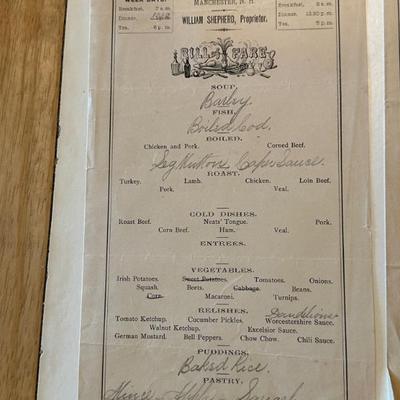 WEEK DAYS.
Breakfast, 7 a.m.
Dinner,
Tea, 6 p.m.
MANCHESTER, N. H.
WILLIAM SHEPHERD, Proprietor.
Breakfast, 8 a.m.
Dinner, 12.30 p.m.
Tea, 5 p.m.
BILL of FARE
SOUP.
Barley.
FISH.
Boiled Cod.
BOILED.
Chicken and Pork. Corned Beef.
Leg Mutton Caper Sauce.
ROAST.
Turkey. Lamb. Chicken. Loin Beef.
Pork. Veal.
COLD DISHES.
Roast Beef. Neats' Tongue. Pork.
Corn Beef. Ham. Veal.
ENTREES.
VEGETABLES.
Irish Potatoes. Sweet Potatoes. Tomatoes. Onions.
Squash. Beets. Cabbage. Beans.
Corn. Macaroni. Turnips.
RELISHES. Dandelions
Tomato Ketchup. Cucumber Pickles. Worcestershire Sauce.
Walnut Ketchup. Excelsior Sauce.
German Mustard. Bell Peppers. Chow Chow. Chili Sauce.
PUDDINGS.
Baked Rice.
PASTRY.
Mince Apple Squash